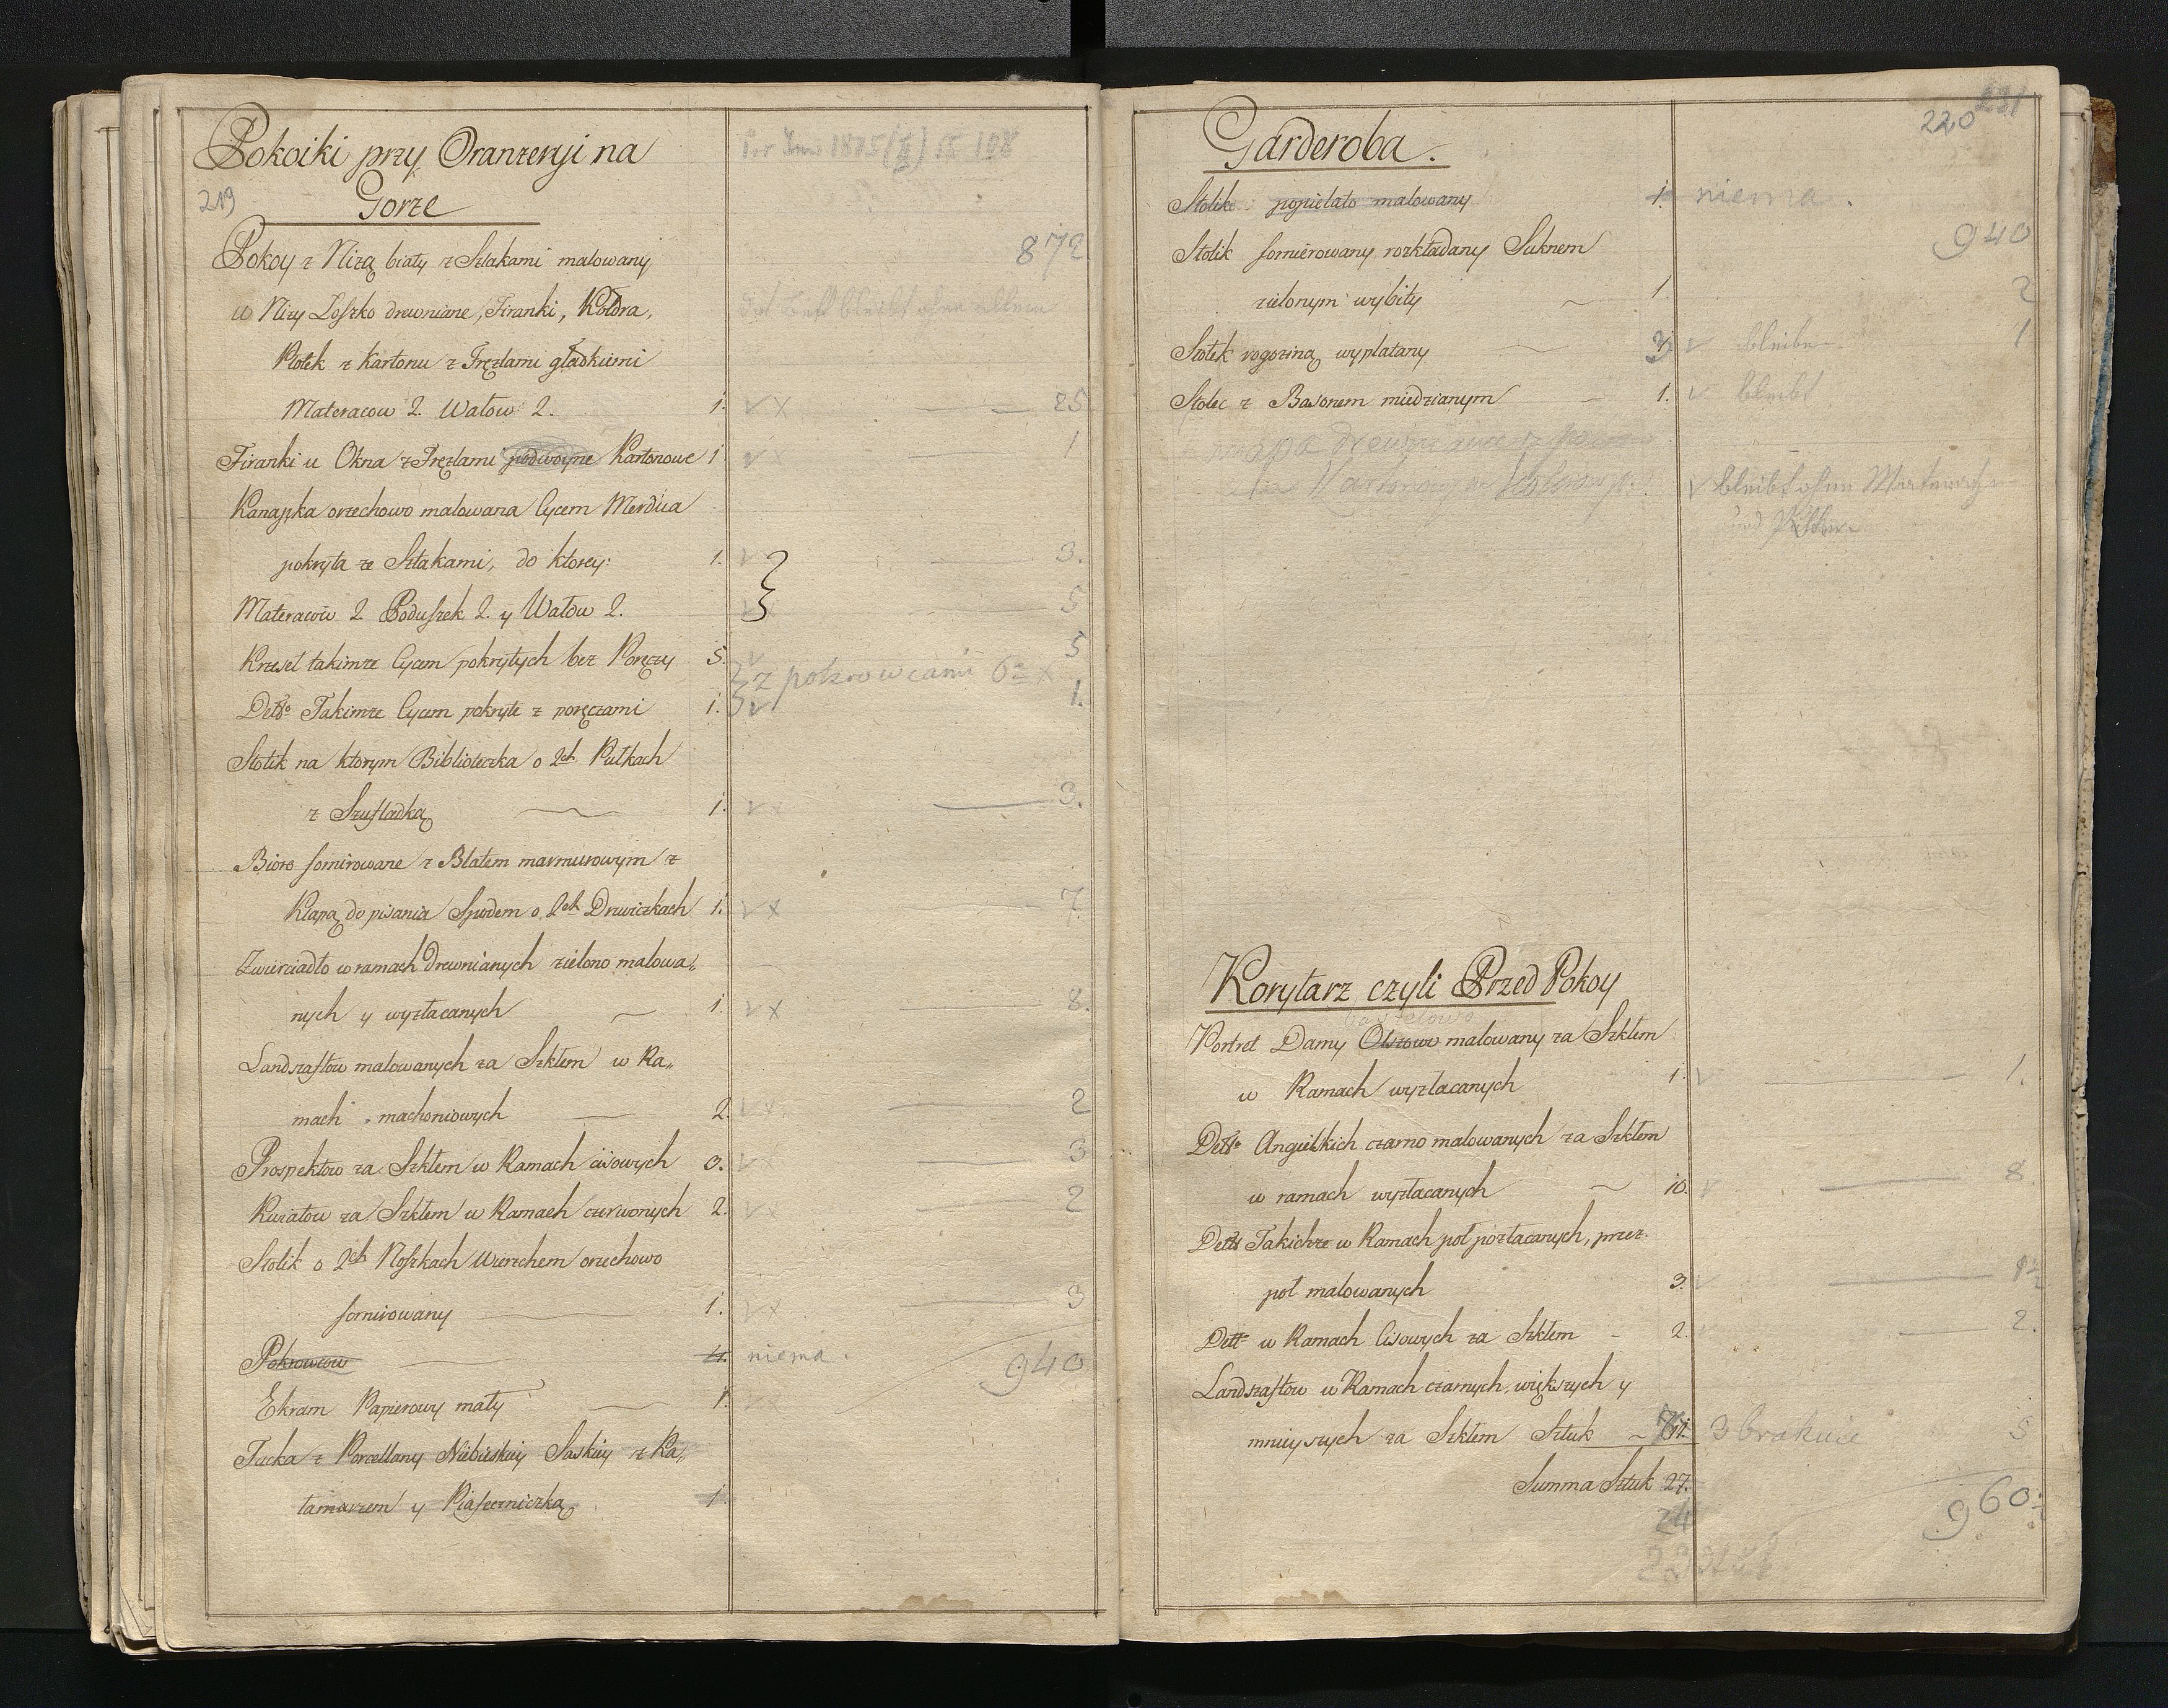 Pokoiki przy Oranżeryi na
Gorze
219
Pokoy z Niżą biały z Szlakami malowany
872
w Niży Loszko drewniane, Firanki, Kołdra,
Płotek z Kartonu z Fręzlami gładkiemi
Materacow 2. Wałow 2. 1. 25
Firanki u Okna z Fręzlami podwoyne Kartonowe 1 1
Kanapka orzechowo malowana Cycem Merdua
pokryta ze Szlakami, do ktorey: 1. 3.
Materacow 2. Poduszek 2. y Wałow 2. 5
Krzeseł takimże Cycem pokrytych bez Poręczy 5. 5
z pokrowcami 6
Detto Takimże Cycem pokryte z poręczami 1. 1.
Stolik na ktorym Biblioteczka o 2ch Pułkach
z Szufladką 1. 3.
Bióro fornirowane z Blatem marmurowym z
Klapą do pisania Spodem o 2ch Drzwiczkach 1. 7
Zwierciadło w ramach drewnianych zielono malowa„
nych y wyzłacanych 1. 8.
Landszaftow malowanych za Szkłem w Ra„
mach machoniowych 2. 2
Prospektow za Szkłem w Ramach cisowych 3. 3
Kwiatow za Szkłem w Ramach czerwonych 2. 2
Stolik o 2ch Noszkach Wierzchem orzechowo
fornirowany 1. 3
Pokrowcow 4. niema. 940
Ekram Papierowy mały 1.
Tacka z Porcellany Niebieskiey Saskiey z Ka„
łamarzem y Piaseczniczką 1.
221
220
Garderoba.
Stolik popielato malowany 1. niema.
940
Stolik fornierowany rozkładany Suknem
zielonym wybity 1. 2
Stołek rogoziną wyplatany 3 bleiben 1
Stolec z Basonem miedzianym 1. bleibt
bleibt ohne
und
Korytarz czyli Przed Pokoy
Pastelowo
Portret Damy Olszowo malowany za Szkłem
w Ramach wyzłacanych 1. 1.
Detto Angielskich czarno malowanych za Szkłem
w ramach wyzłacanych 10. 8.
Detto Takichże w Ramach poł pozłacanych, przez
poł malowanych 3.
Dett w Ramach Cisowych za Szkłem 2. 2.
Landszaftow w Ramach czarnych, większych y
mnieyszych za Szkłem Sztuk 3 brakuie 5
Summa Sztuk 27.
24
960